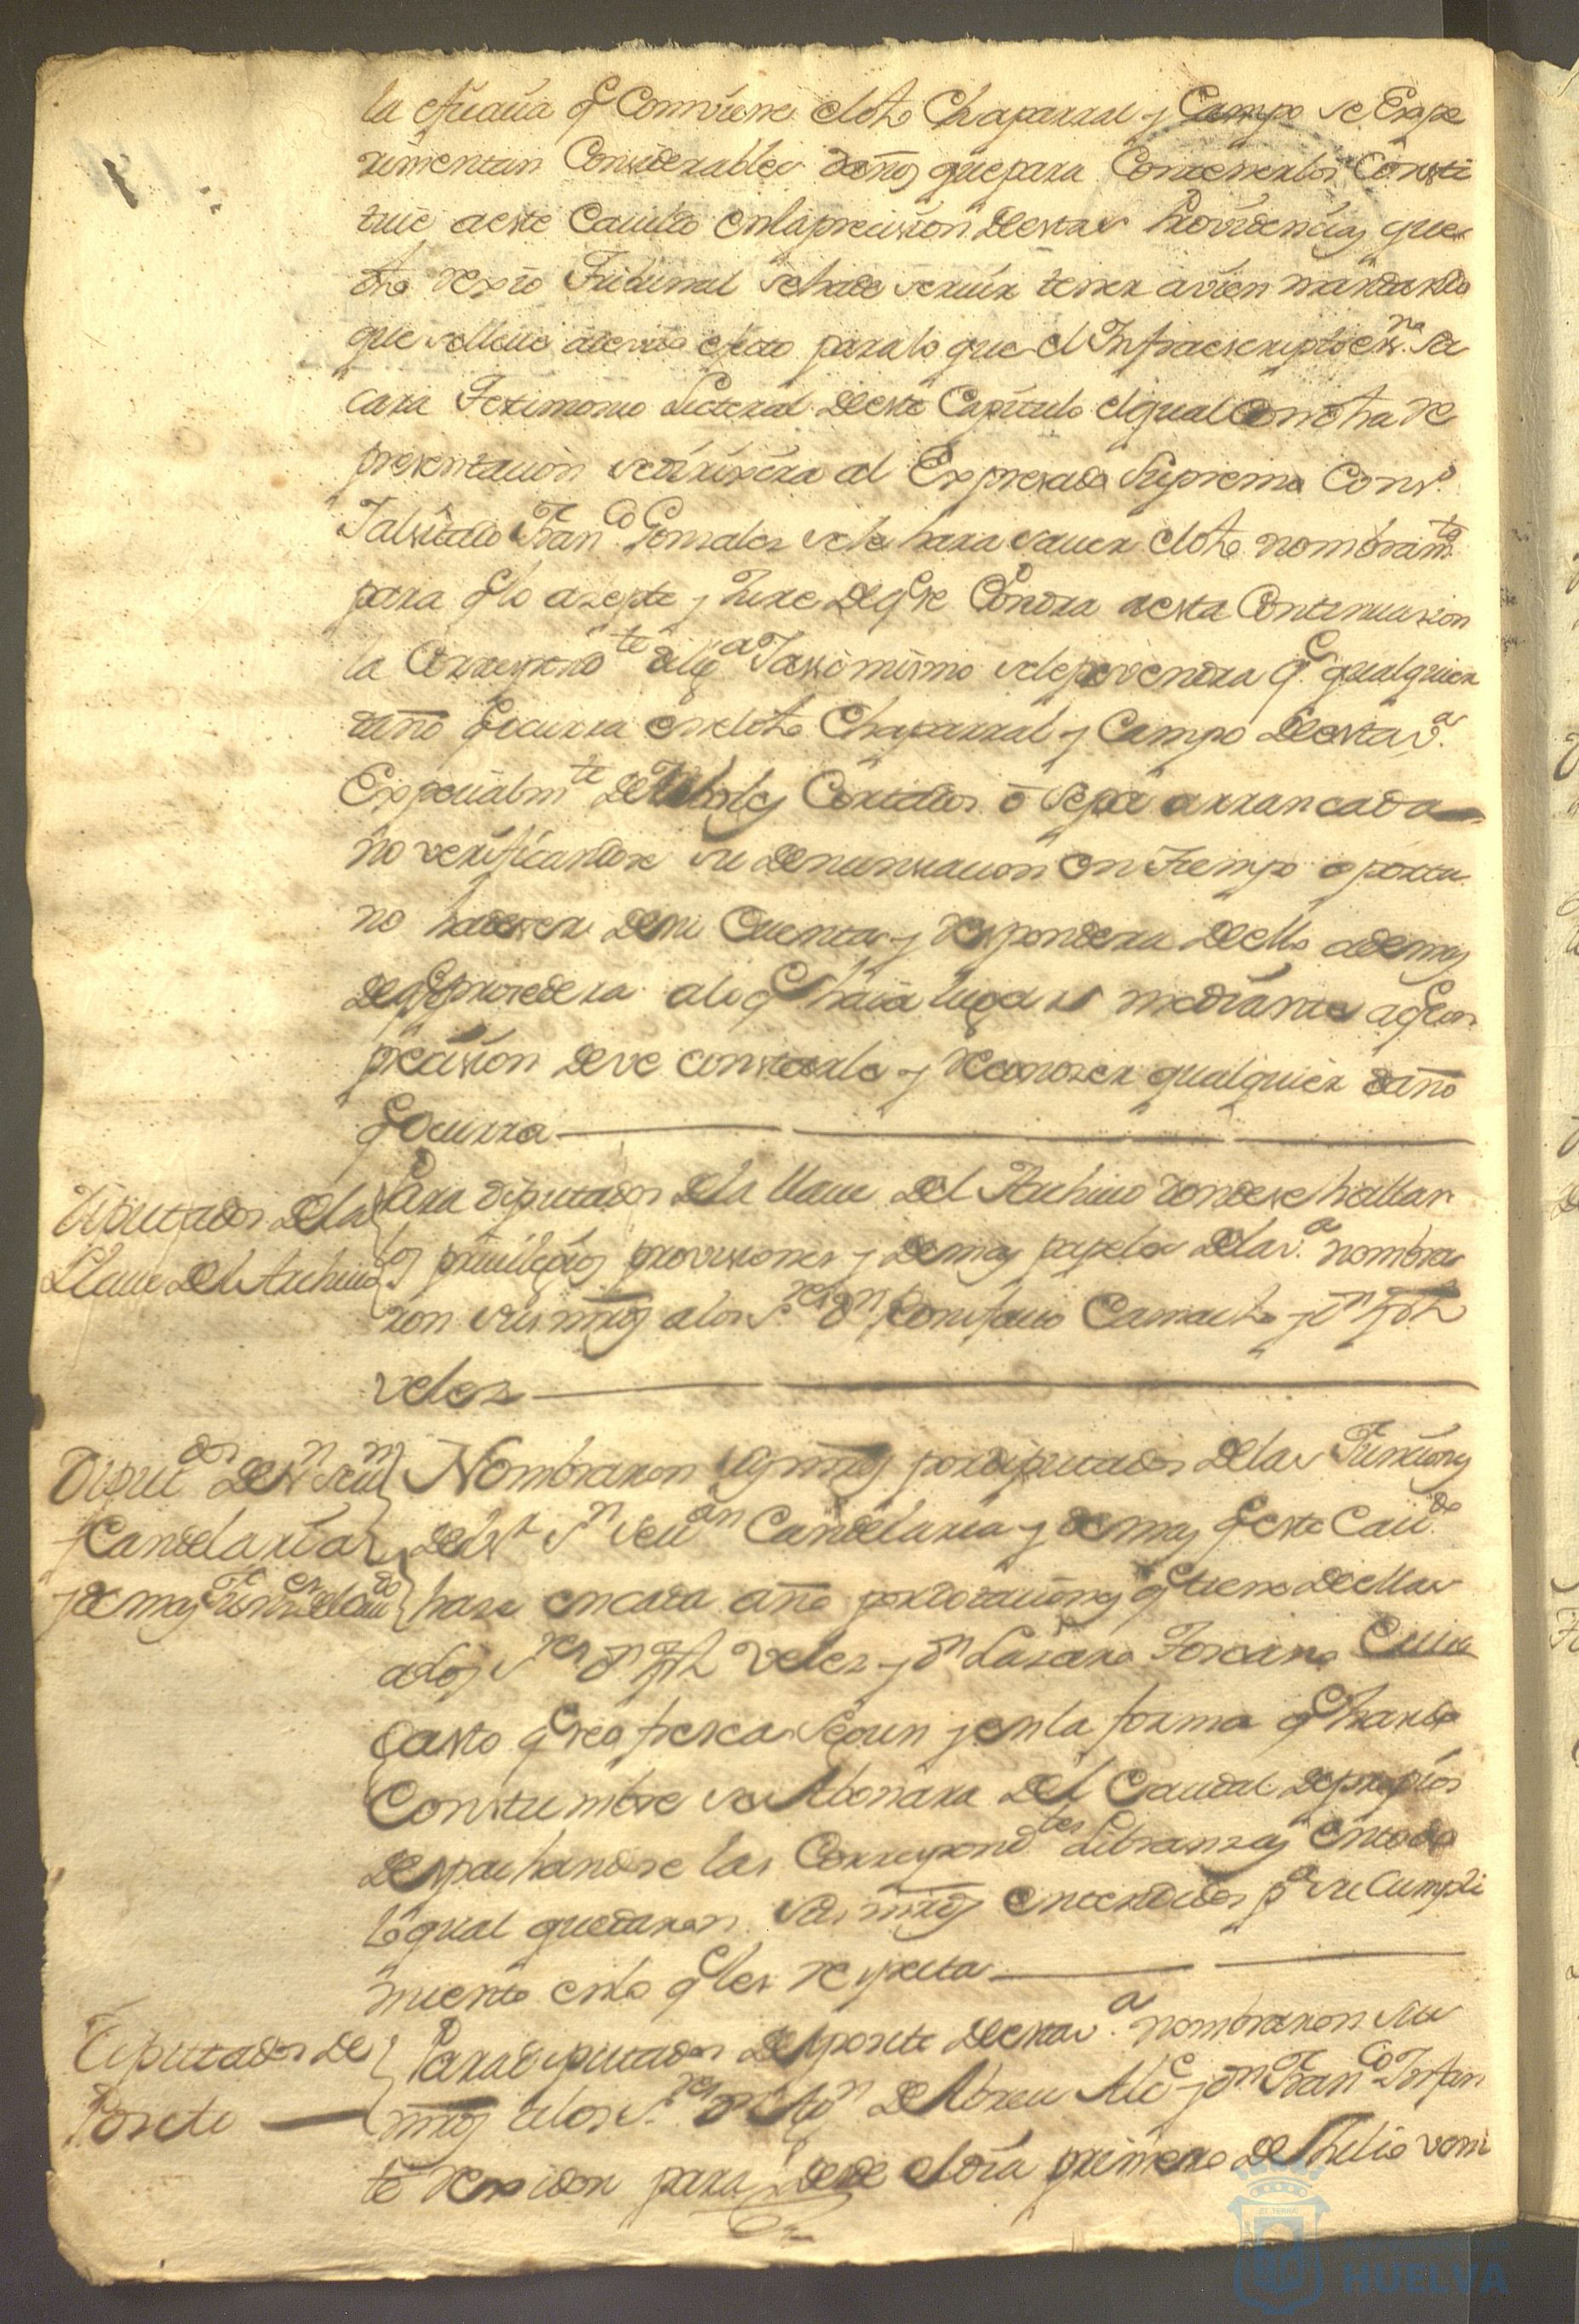 la eficacia q̃ Combiene el dho Chaparral y Campo se Expe
rimentan Considerables daños que para Contenerlos Consti
tuie a este Cavildo en la precision de estas Providencias que
dho rexio Tribunal se ha de servir tener a vien mandando
que se lleve a devido efecto para lo que el Infraescripto essno. Sa
cara Testimonio Literal de este Capitulo el qual Con dha re
presentacion se dirixira al Expresado Supremo Consº.
I al citado Franco Gonsales se le hara saver el dho nombramto
para q̃ lo azepte y Jure de q̃ se Pondra a esta Continuasion
la Correspondte dilixa I assi mismo se le prevendra q̃ qualquier
daño q̃ ocurra en el dho Chaparral y Campo de esta va.
Expecialmte de Arboles Cortados ó Sepa arrancada
no verificandose su denunsiacion en tiempo oportu
no ha de ser de su Cuenta y respondera de ello ademas
de q̃ se prosedera a lo q̃ haia lugar mediante a q̃ con
precision deve constarle y reconoser qualquier daño
q̃ Ocurra
Diputados de la
Llave del Archivo
Para diputados de la llave del Archivo donde se hallan
los privilegios provisiones y demas papeles de la va. nombra
ron sus mrds a los Sres Dn Bonifacio Camacho y Dn Jph
Veles
Diputdos de Sn Sevn
y Candelaria
y demas funcnes del Cavdo
Nombraron sus mrds por diputados de las Funcions
de Sn Sevan Candelaria y demas q̃ este Cavdo
hase en cada año por dotacions q̃ tiene de ellas
a los Sres Dn Jph Veles y Dn Lasaro Toscano Cuio
Gasto q̃ se ofresca Segun y en la forma q̃ han sido
Constumbre se Abonara del Caudal de propios
despachandose las Correspondtes Libransas en todo
lo qual quedaron sus mrds entendidos pa su Cumpli
miento en lo q̃ les respecta
Diputados de
Posito
Para diputados del posito de esta va. nombraron sus
mrds a los Sres Dn de Abreu Alce y Dn Franco Infan
te rexidor para desde el dia primero de Julio veni
HUELVA